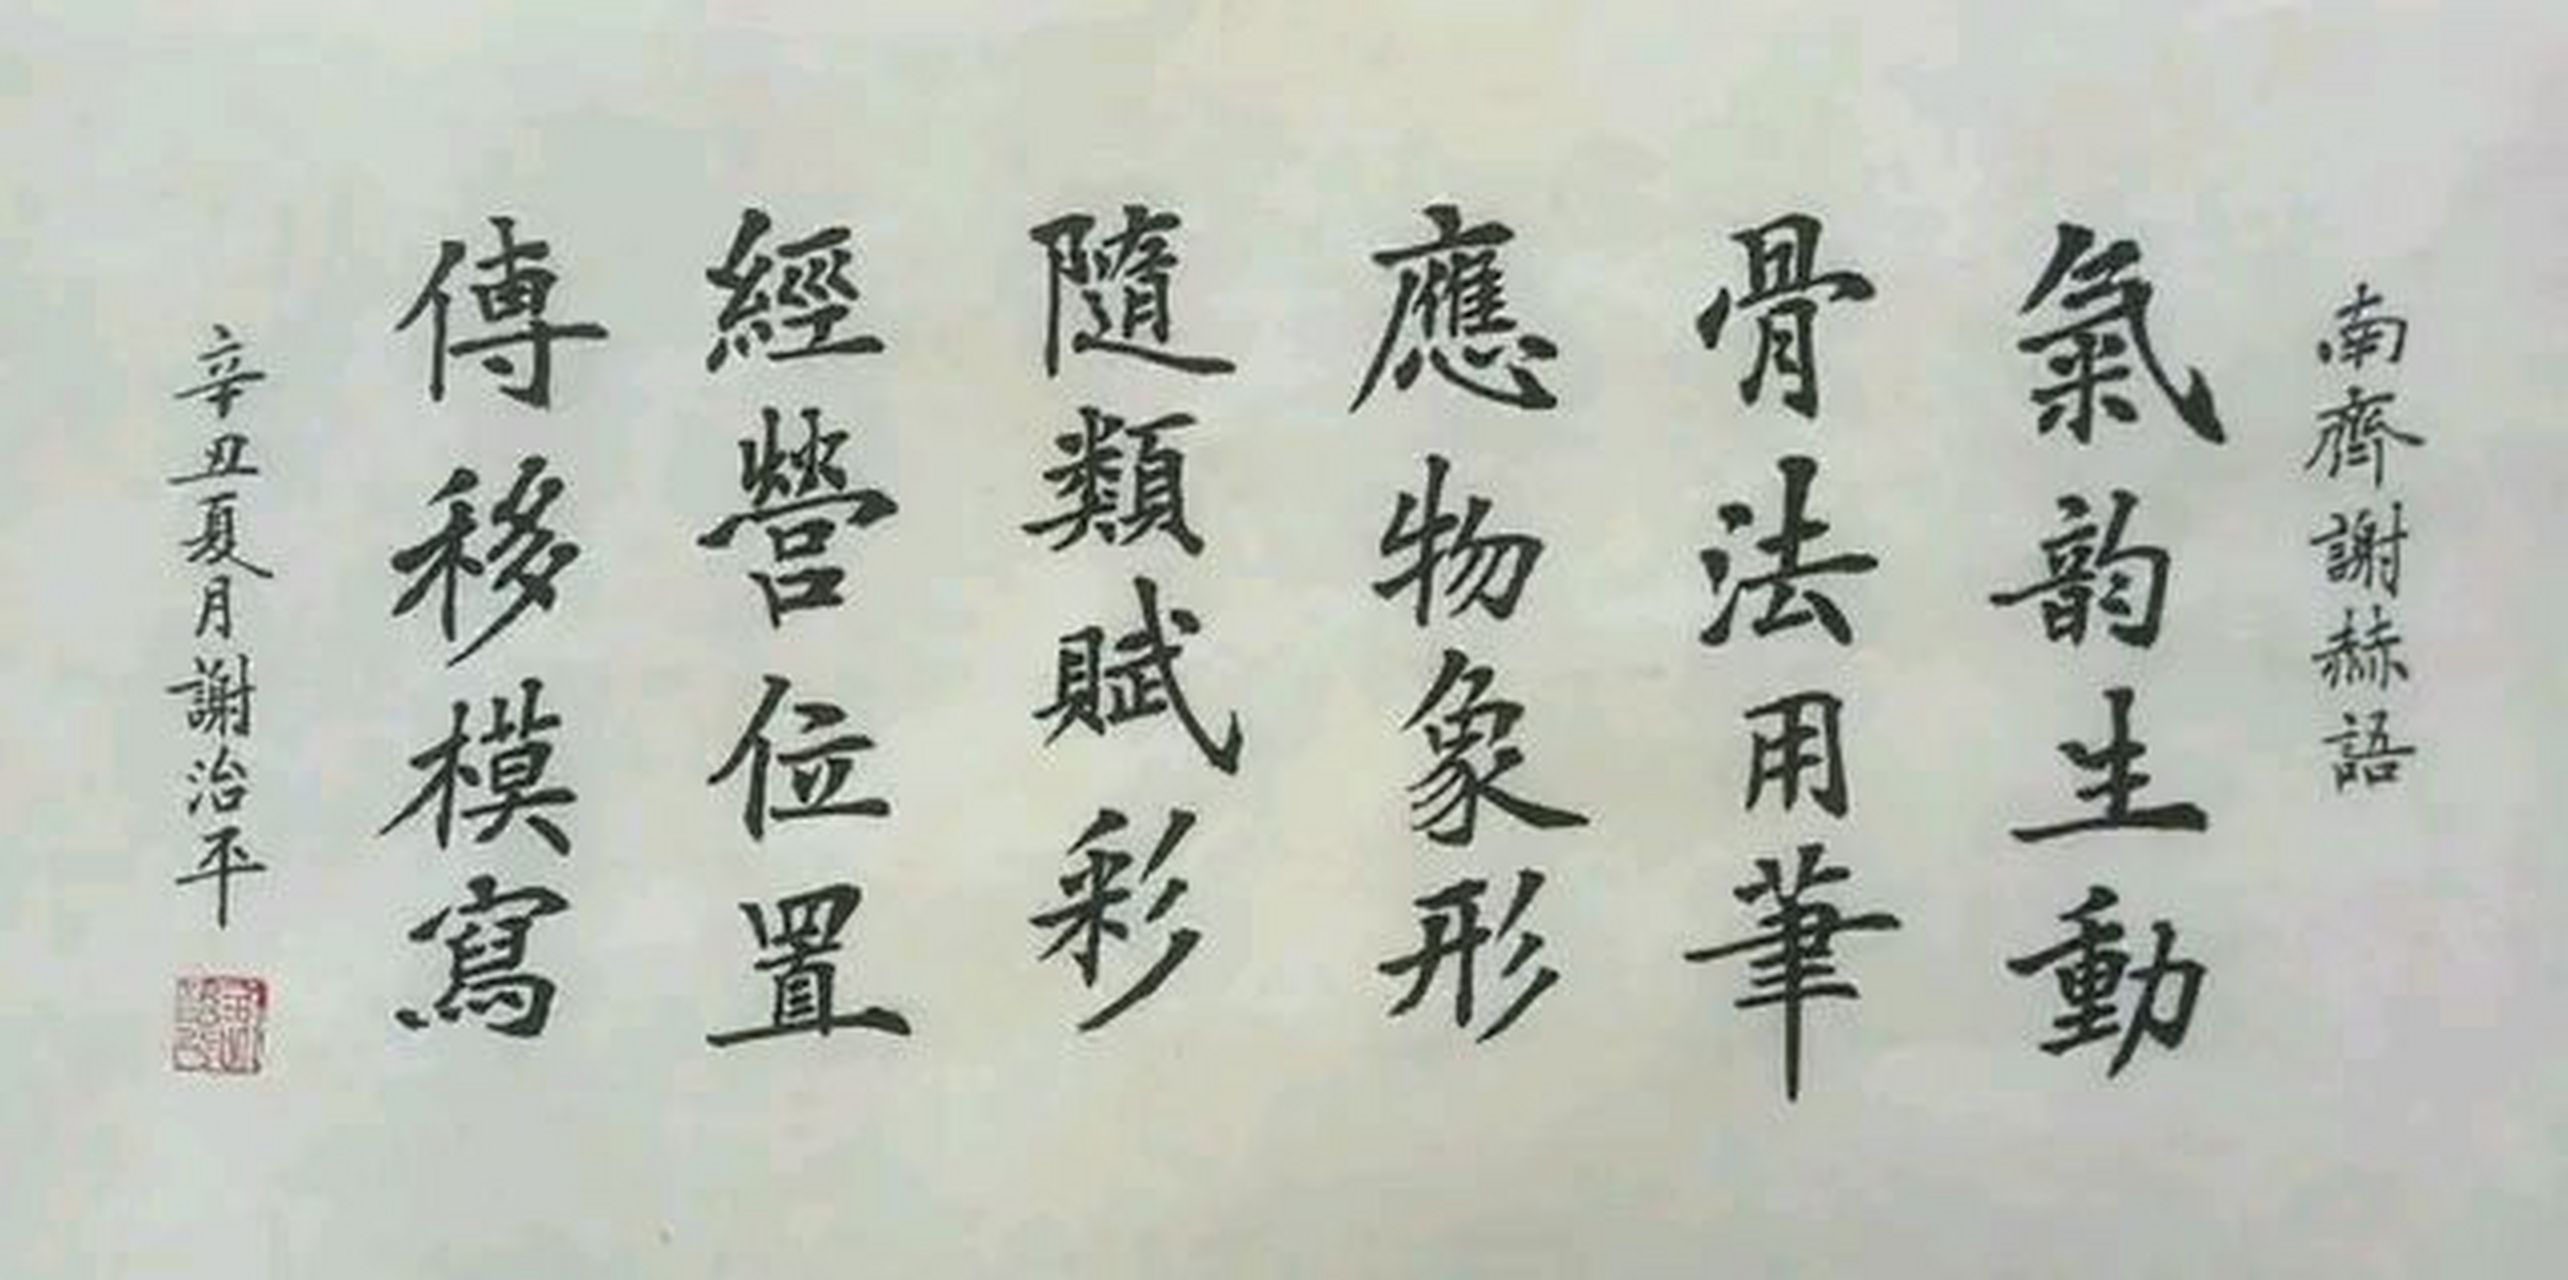 南齊謝赫語
氣韵生動
骨法用筆
應物象形
隨類賦彩
經營位置
傳移模寫
辛丑夏月謝治平